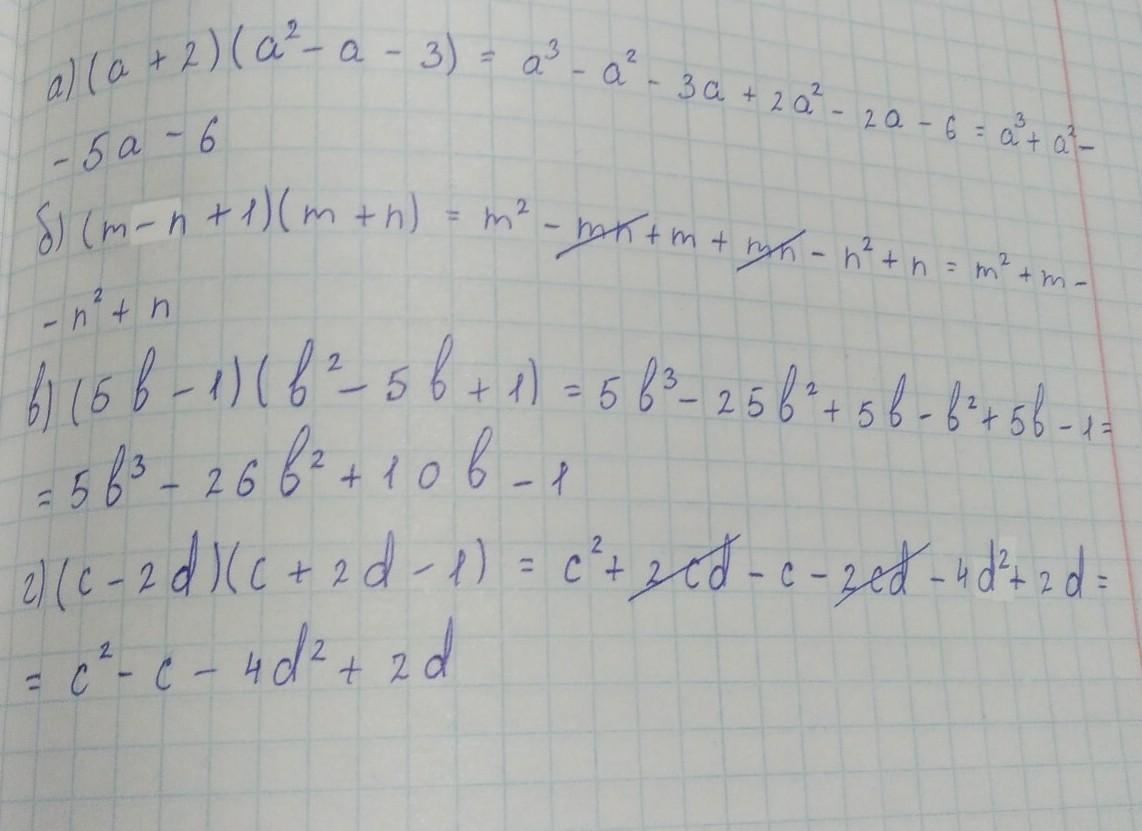 а) (a + 2) (a² - a - 3) = a³ - a² - 3a + 2a² - 2a - 6 = a³ + a² -
- 5a - 6
б) (m - n + 1)(m + n) = m² - mn + m + mn - n² + n = m² + m -
- n² + n
в) (5b - 1)(b² - 5b + 1) = 5b³ - 25b² + 5b - b² + 5b - 1 =
= 5b³ - 26b² + 10b - 1
г) (c - 2d)(c + 2d - 1) = c² + 2cd - c - 2cd - 4d² + 2d =
= c² - c - 4d² + 2d